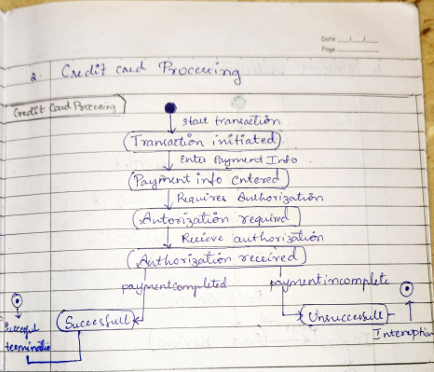 Date / /
Page
2. Credit card Processing
Credit Card Processing
Start transaction
Transaction initiated
Enter Payment Info
Payment info entered
Requires Authorization
Autorization required
Recieve authorization
Authorization received
payment completed
payment incomplete
Successfull
Unsuccessfull
Successful
termination
Interruption